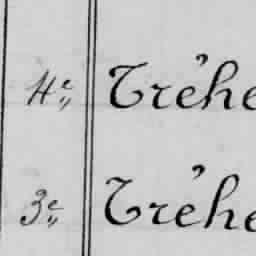 4e Tréhe
3e Tréhe